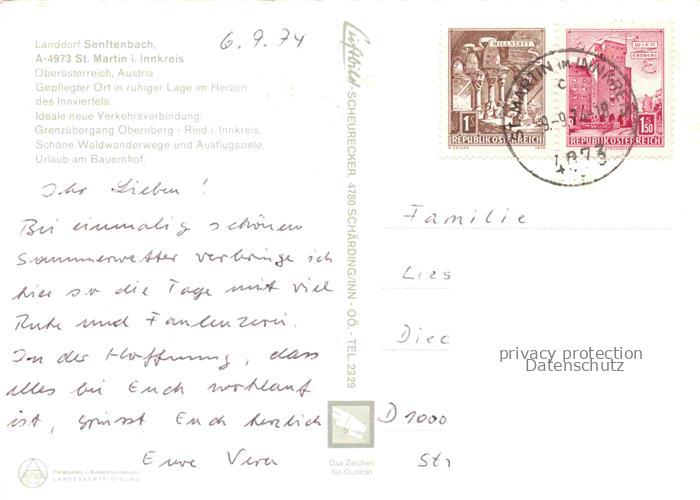 6.9.74
Landdorf Senftenbach,
A-4973 St. Martin i. Innkreis
Oberösterreich, Austria
Gepflegter Ort in ruhiger Lage im Herzen
des Innviertels.
Ideale neue Verkehrsverbindung:
Grenzübergang Obernberg - Ried i. Innkreis.
Schöne Waldwanderwege und Ausflugsziele.
Urlaub am Bauernhof.
Ihr Lieben!
Bei einmalig schönem
Sommerwetter verbringe ich
hier so die Tage mit viel
Ruhe und Faulenzerei.
In der Hoffnung, dass
alles bei Euch wohlauf
ist, grüsst Euch herzlich
Eure Vera
Freigegeben v. Bundesministerium f.
LANDESVERTEIDIGUNG
Luftbild-SCHEURECKER, 4780 SCHÄRDING/INN - OÖ. - TEL. 2329
Das Zeichen
für Qualität
MILLSTATT
1S
REPUBLIK ÖSTERREICH
WIEN
ERDBERG
1S50
REPUBLIK ÖSTERREICH
ST. MARTIN IM INNKREIS
4973
Familie
Lies
Diec
privacy protection
Datenschutz
D 1000
Str